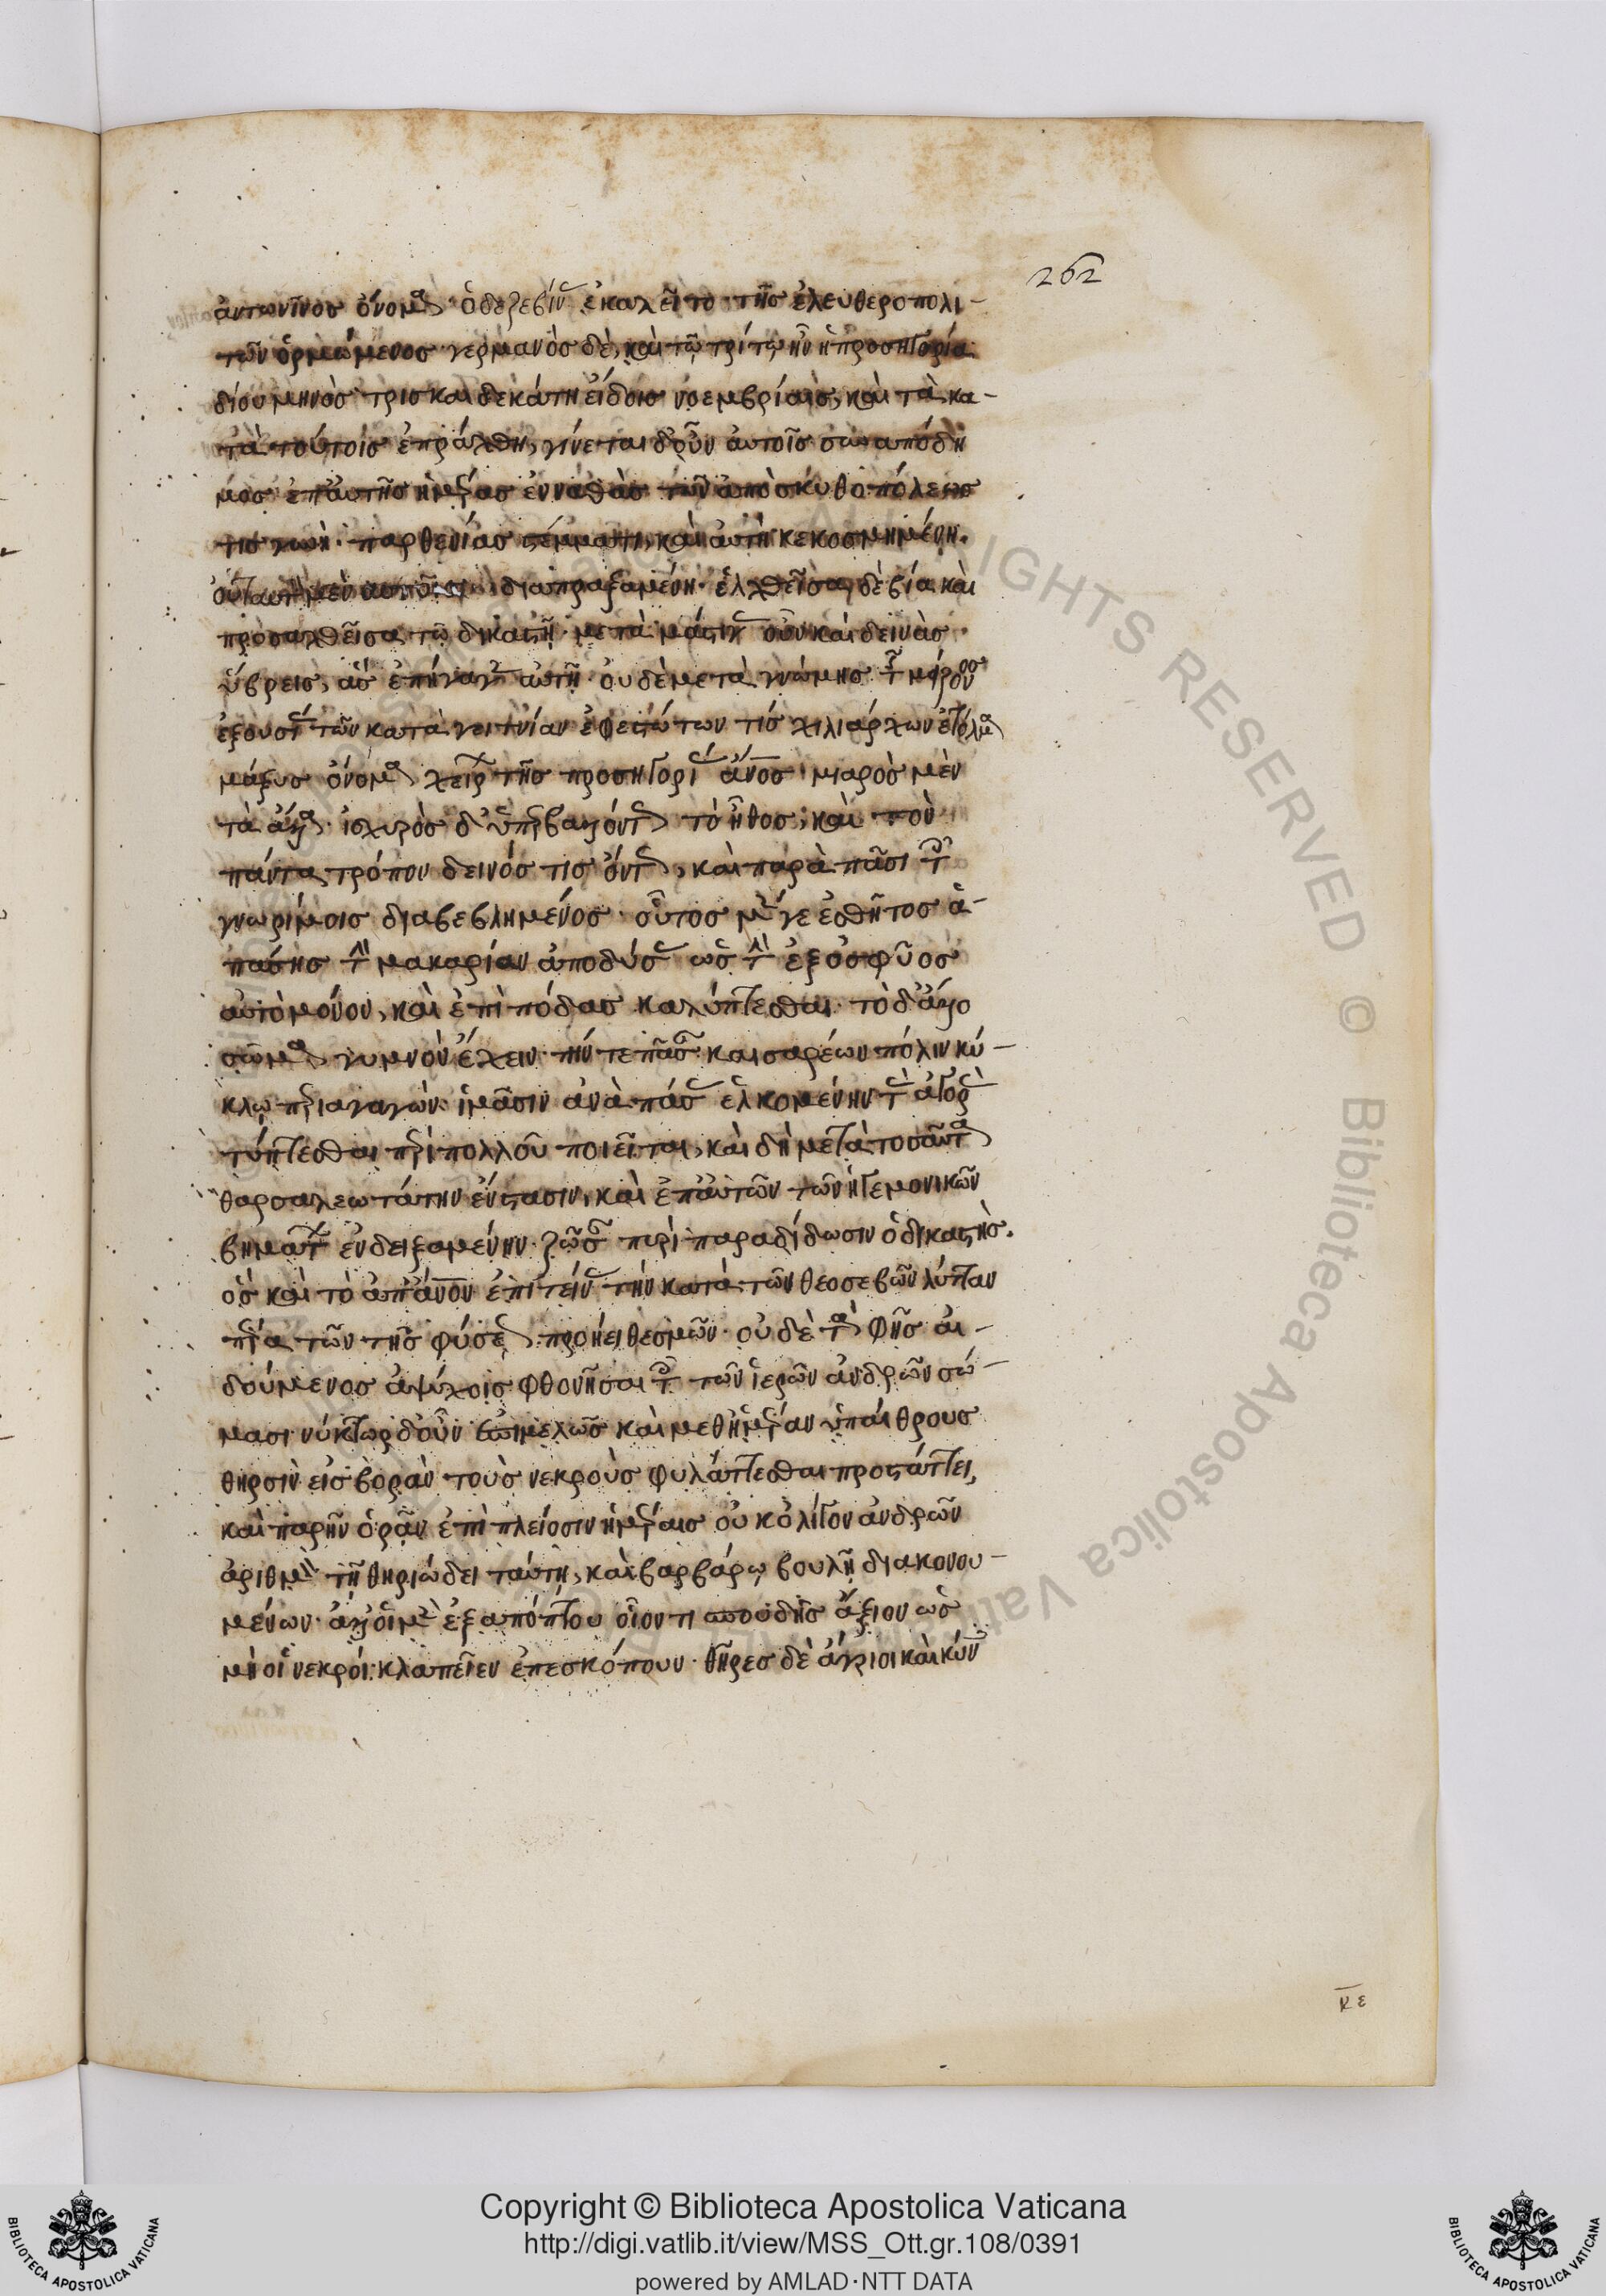 262
ἀντωνῖνος ὄνομα· ὁ δὲ ζεβίν ἐκαλεῖτο τῆς ἐλευθεροπολι-
τῶν ὁρμώμενος· γερμανὸς δὲ, καὶ τῷ τρίτῳ ἦν ἡ προσηγορία
δίου μηνὸς τρισκαιδεκάτη εἰδοῖς νοεμβρίαις, καὶ τὰ κα-
τὰ τούτοις ἐπράχθη, γίνεται δ' οὖν αὐτοῖς συναπόδη
μος ἐπ' αὐτῆς ἡμέρας ἐνναθὰς τῶν ἀπὸ σκυθοπόλεως
τις γυνὴ· παρθενίας στέμματι καὶ αὐτὴ κεκοσμημένη·
διαπραξαμένη· ἑλχθεῖσα δὲ βία καὶ
προσαχθεῖσα τῷ δικαστῇ· μετὰ μάστιγ οὖν καὶ δεινὰς
ὕβρεις, ἃς ἐπήγαγ αὐτῇ οὐδὲ μετὰ γνώμης τ μείζονος
ἐξουσί τῶν κατὰ γειτνίαν ἐφεστώτων τίς χιλιάρχων ἐτόλμα
μάξυς ὄνομα χείρ τῆς προσηγορί ἄνος· μιαρὸς μὲν
τὰ ἄλλα· ἰσχυρὸς δ' ὑπερβαλλόντ τὸ ἦθος, καὶ τὸν
πάντα τρόπον δεινός τις ὄντ, καὶ παρὰ πᾶσι τ
γνωρίμοις διαβεβλημένος· οὗτος μ γε ἐσθῆτος ἁ-
πάσης τ μακαρίαν ἀποδύσ ὡς τ ἐξ ὀσφύος
αὐτὸ μόνον, καὶ ἐπὶ πόδας καλύπτεσθαι· τὸ δ' ἄλλο
σῶμα γυμνὸν ἔχειν· τήν τε πᾶσ καισαρέων πόλιν κύ-
κλῳ περιαγαγὼν ἱμᾶσιν ἀνὰ πάσ ἑλκομένην τ ἀγορ
τύπτεσθαι περὶ πολλοῦ ποιεῖται, καὶ δὴ μετὰ τοσαῦτα
θαρσαλεωτάτην ἔνστασιν, καὶ ἐπ' αὐτῶν τῶν ἡγεμονικῶν
βημάτ ἐνδειξαμένην· ζῶσ πυρὶ παραδίδωσιν ὁ δικαστὴς·
ὃς καὶ τὸ ἀπάνον ἐπιτείν τὴν κατὰ τῶν θεοσεβῶν λύτταν
πέρα τῶν τῆς φύσε προῄει θεσμῶν· οὐδὲ τα φῆς αἰ-
δούμενος ἀψύχοις φθονῆσαι τ τῶν ἱερῶν ἀνδρῶν σώ-
μασι νύκτωρ δ' οὖν ἐπιμελῶς καὶ μεθ' ἡμέραν ὑπαίθρους
θηρσὶν εἰς βορὰν τοὺς νεκροὺς φυλάττεσθαι προστάττει,
καὶ παρῆν ὁρᾶν ἐπὶ πλείοσιν ἡμέραις οὐκ ὀλίγον ἀνδρῶν
ἀριθμὸν τῇ θηριώδει ταύτῃ, καὶ βαρβάρῳ βουλῇ διακονου-
μένων· ἀλλ' οἱ μὲν ἐξ ἀπόπτου οἷόν τι σπουδῆς ἄξιον ὡς
μὴ οἱ νεκροὶ κλαπεῖεν ἐπεσκόπουν· θῆρες δὲ ἄγριοι καὶ κύν
κε
ALL RIGHTS RESERVED © Biblioteca Apostolica Vaticana
Copyright © Biblioteca Apostolica Vaticana
http://digi.vatlib.it/view/MSS_Ott.gr.108/0391
powered by AMLAD·NTT DATA
BIBLIOTECA APOSTOLICA VATICANA
BIBLIOTECA APOSTOLICA VATICANA